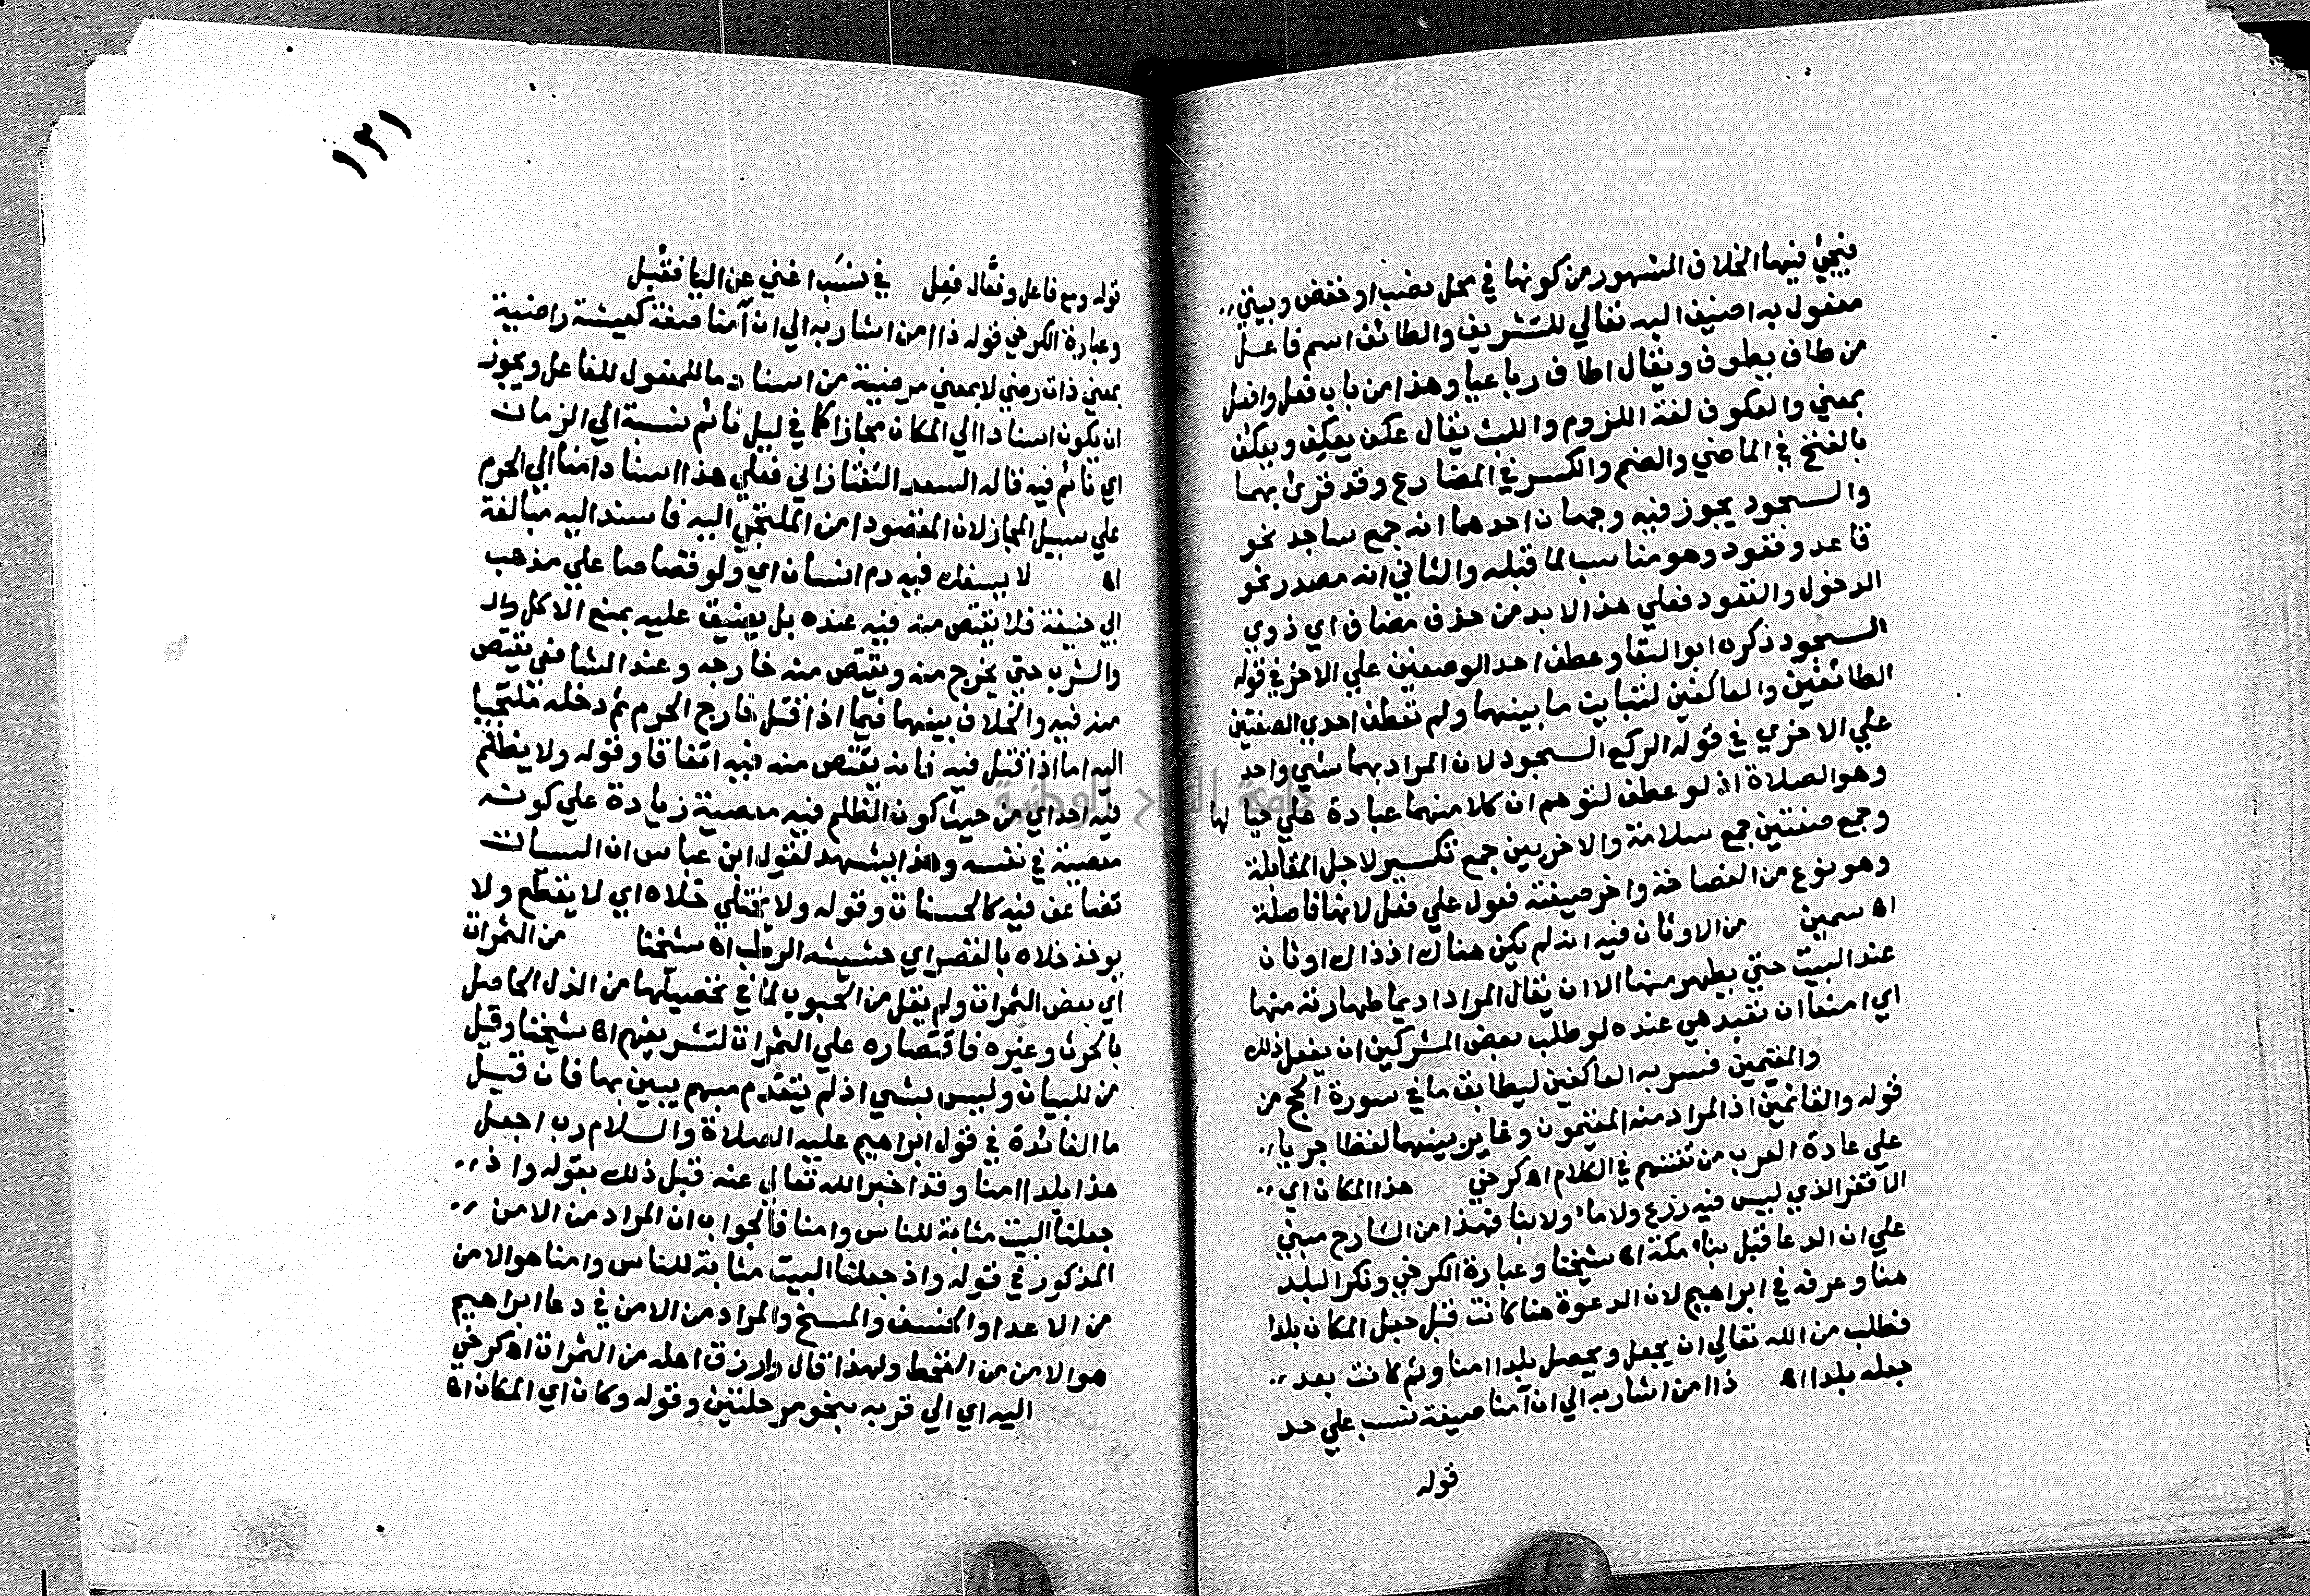 فيجئ فيها الخلاف المشهور من كونها في محل نصب او خفض وبيتي
مفعول به اضيف اليه تعالي للتشريف والطائف اسم فاعل
من طاف يطوف ويقال اطاف رباعيا وهذا من باب فعل وافعل
بمعني والعكوف لغة اللزوم واللبث يقال عكف يعكِف ويعكُف
بالفتح في الماضي والضم والكسر في المضارع وقد قرئ بهما
والسجود يجوز فيه وجهان احدهما انه جمع ساجد نحو
قاعد وقعود وهو مناسب لما قبله والثاني انه مصدر نحو
الدخول والقعود فعلي هذا لا بد من حذف مضاف اي ذوي
السجود ذكره ابو البقا وعطف احد الوصفين علي الاخر في قوله
الطائفين والعاكفين لتباين ما بينهما ولم تعطف احدي الصفتين
علي الاخري في قوله الركع السجود لان المراد بهما شي واحد
وهو الصلاة اذ لو عطف لتوهم ان كلا منهما عبادة علي حيالها
وجمع صفتين جمع سلامة والاخريين جمع تكسير لاجل المقابلة
وهو نوع من الفصاحة واخر صيغة فعول علي فعل لانها فاصلة
اه سمين من الاوثان فيه انه لم يكن هناك اذ ذاك اوثان
عند البيت حتي يطهر منها الا ان يقال المراد اديما طهارته منها
اي امنعا ان تعبد هي عنده لو طلب بعض المشركين ان يفعل ذلك
والمقيمين فسر به العاكفين ليطابق ما في سورة الحج من
قوله والقائمين اذ المراد منه المقيمون وغاير بينهما لفظا جريا
علي عادة العرب من تفننهم في الكلام اه كرخي هذا المكان اي
الاقفر الذي ليس فيه زرع ولا ماء ولا بنا فهذا من الشارح مبني
علي ان الدعا قبل بناء مكة اه شيخنا وعبارة الكرخي ونكر البلد
هنا وعرفه في ابراهيم لان الدعوة هنا كانت قبل جعل المكان بلدا
فطلب من الله تعالي ان يجعل ويحصل بلدا امنا وثم كانت بعد
جعله بلدا اه ذا امن اشار به الي ان آمنا صيغة نسب علي حد
قوله
قوله ومع فاعل وفعّال فعِل في نسَب اغني عن اليا فقُبل
وعبارة الكرخي قوله ذا امن اشار به الي ان آمنا صفة كعيشة راضية
بمعني ذات رضي لا بمعني مرضية من اسناد ما للمفعول للفاعل ويجوز
ان يكون اسنادا الي المكان مجازا كما في ليل نائم بنسبة الي الزمان
اي نائم فيه قاله السعد التفتازاني فعلي هذا اسناد امنا الي الحرم
علي سبيل المجاز لان المقصود امن الملتجئ اليه فاسند اليه مبالغة
اه لا يسفك فيه دم انسان اي ولو قصاصا علي مذهب
ابي حنيفة فلا يقتص منه فيه عنده بل يضيق عليه بمنع الاكل وال
والشرب حتي يخرج منه ويقتص منه خارجه وعند الشافعي يقتص
منه فيه والخلاف بينهما فيما اذا قتل خارج الحرم ثم دخله ملتجيا
اليه اما اذا قتل فيه فانه يقتص منه فيه اتفاقا وقوله ولا يظلم
فيه احد اي من حيث كون الظلم فيه معصية زيادة علي كونه
معصية في نفسه وهذا يشهد لقول ابن عباس ان السيات
تضاعف فيه كالحسنات وقوله ولا يختلي خلاه اي لا يقطع ولا
يوخذ خلاه بالقصر اي حشيشه الرطب اه شيخنا من الثمرات
اي بعض الثمرات ولم يقل من الحبوب لما في تحصيلها من الذل الحاصل
بالحرث وغيره فاقتصاره علي الثمرات لتشريفهم اه شيخنا وقيل
من للبيان وليس بشي اذ لم يتقدم مبهم يبين بها فان قيل
ما الفائدة في قول ابراهيم عليه الصلاة والسلام رب اجعل
هذا بلدا امنا وقد اخبر الله تعالي عنه قبل ذلك بقوله واذ
جعلنا البيت مثابة للناس وامنا فالجواب ان المراد من الامن
المذكور في قوله واذ جعلنا البيت مثابة للناس وامنا هو الامن
من الاعدا والخسف والمسخ والمراد من الامن في دعا ابراهيم
هو الامن من القحط ولهذا قال وارزق اهله من الثمرات اه كرخي
اليه اي الي قربه بنحو مرحلتين وقوله وكان اي المكان اه
١٢١
جامعة النجاح الوطنية